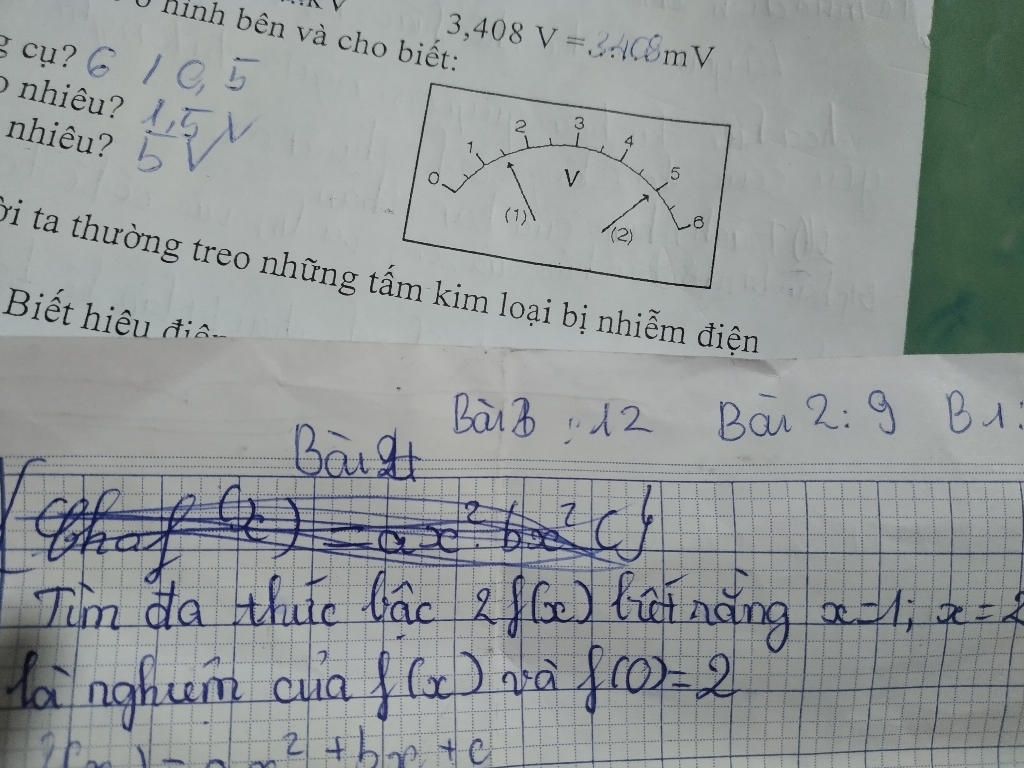 hình bên và cho biết:
3,408 V = 3.408 mV
g cụ? 6 / 0,5
o nhiêu? 1,5 V
nhiêu? 5 V
0 1 2 3 4 5 6
V
(1) (2)
ời ta thường treo những tấm kim loại bị nhiễm điện
Biết hiệu điện
Bài 3 : 12 Bài 2: 9 B 1:
Bài
f(x) = ax² bx² c
Tìm đa thức bậc 2 f(x) biết rằng x=1; x=2
là nghiệm của f(x) và f(0)=2
ax² + bx + c